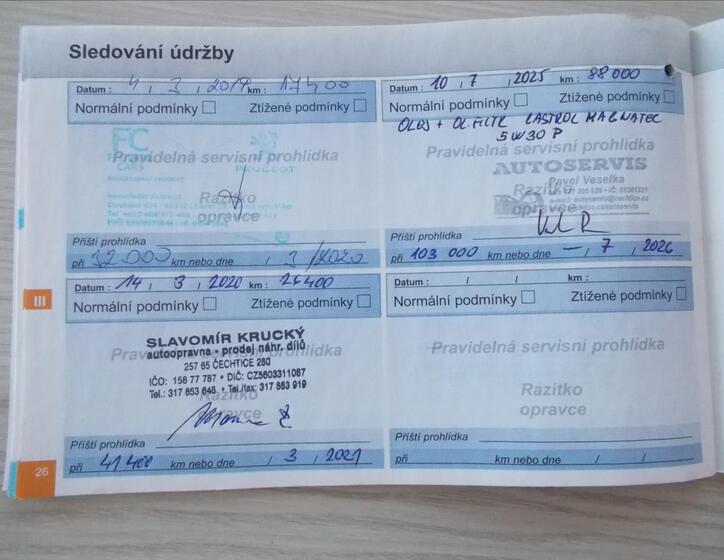 Sledování údržby
Datum : 4 , 3 , 2019 km : 17400
Normální podmínky Ztížené podmínky
FC
CARS PEUGEOT
Pravidelná servisní prohlídka
Razítko
opravce
Příští prohlídka
při 32 000 km nebo dne / 3 / 2020
Datum : 14 , 3 , 2020 km : 26400
Normální podmínky Ztížené podmínky
SLAVOMÍR KRUCKÝ
autoopravna - prodej náhr. dílů
Pravidelná servisní prohlídka
257 65 ČECHTICE 280
IČO: 158 77 787 • DIČ: CZ5603311087
Tel.: 317 853 648 • Tel./fax: 317 853 919
Razítko
opravce
Příští prohlídka
při 41400 km nebo dne / 3 , 2021
Datum : 10 , 7 , 2025 km : 88000
Normální podmínky Ztížené podmínky
OLEJ + OL. FILTR CASTROL MAGNATEC
5W30 P
Pravidelná servisní prohlídka
AUTOSERVIS
Pavel Veselka
Razítko
opravce
Příští prohlídka
při 103 000 km nebo dne — , 7 , 2026
Datum : / / km :
Normální podmínky Ztížené podmínky
Pravidelná servisní prohlídka
Razítko
opravce
Příští prohlídka
při km nebo dne / /
III
26